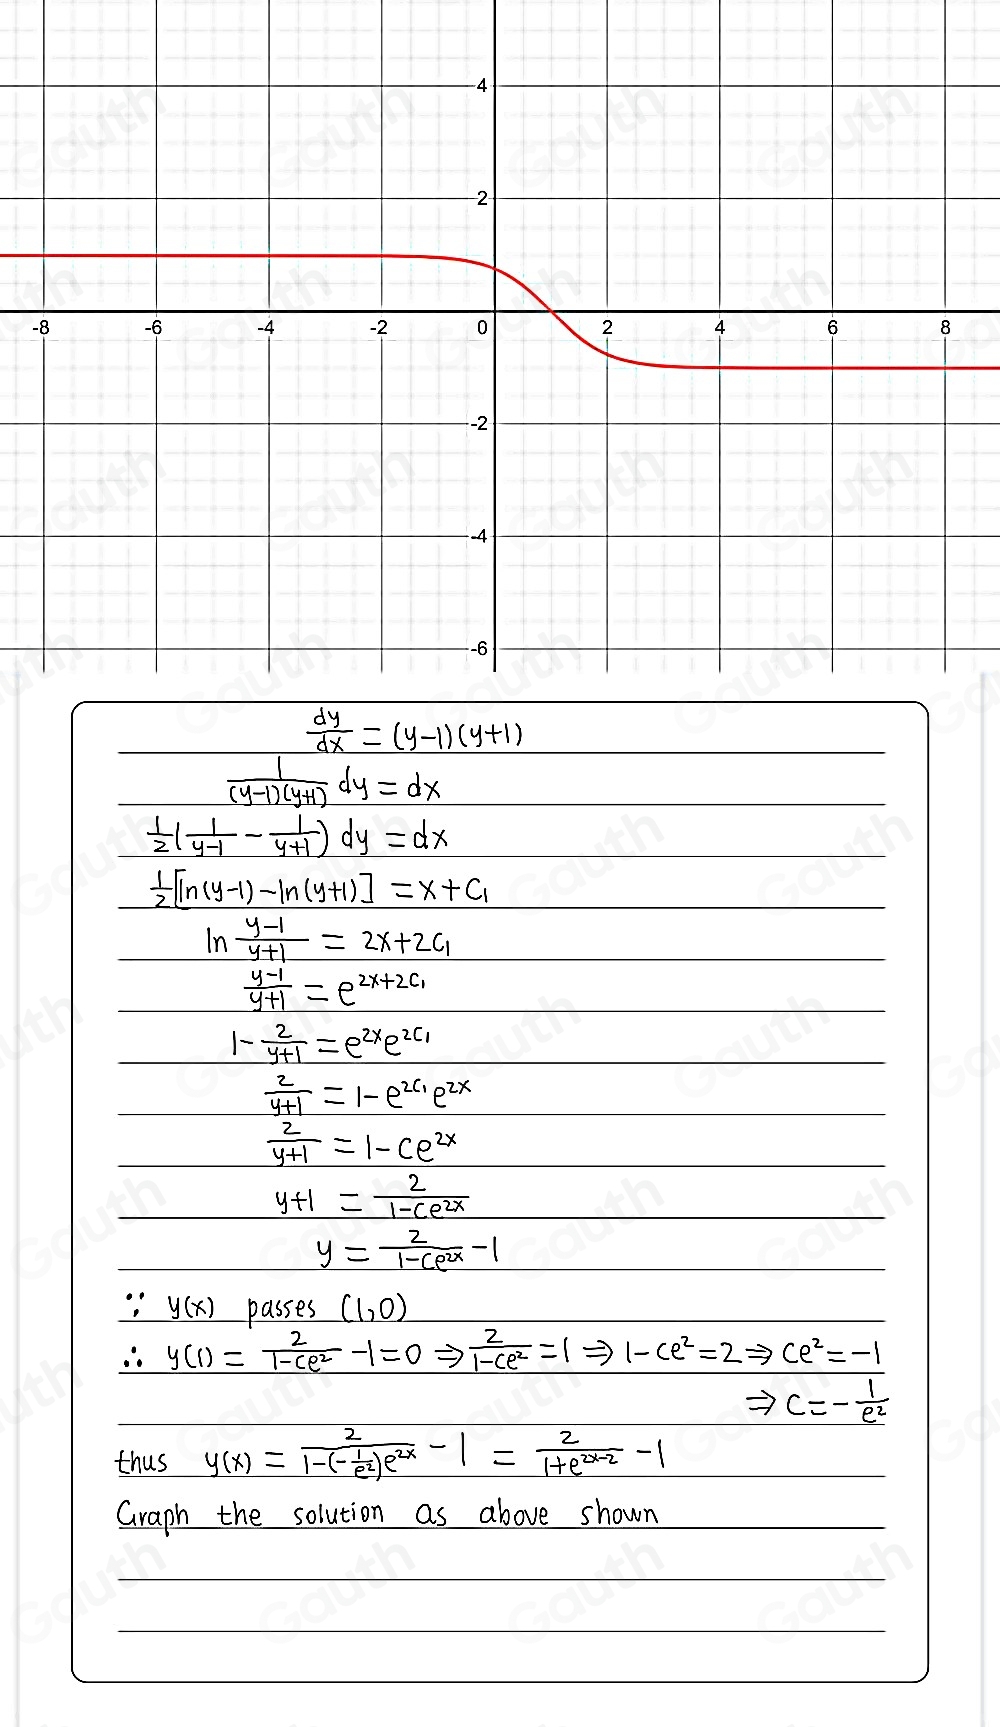 4
2
-8 -6 -4 -2 0 2 4 6 8
-2
-4
-6
dy/dx = (y-1)(y+1)
1/((y-1)(y+1)) dy = dx
1/2(1/(y-1) - 1/(y+1)) dy = dx
1/2[ln(y-1)-ln(y+1)] = x+C₁
ln (y-1)/(y+1) = 2x+2C₁
(y-1)/(y+1) = e^(2x+2C₁)
1- 2/(y+1) = e^(2x)e^(2C₁)
2/(y+1) = 1-e^(2C₁)e^(2x)
2/(y+1) = 1-Ce^(2x)
y+1 = 2/(1-Ce^(2x))
y = 2/(1-Ce^(2x)) -1
∵ y(x) passes (1,0)
∴ y(1) = 2/(1-Ce²) -1=0 ⇒ 2/(1-Ce²) =1 ⇒ 1-Ce²=2 ⇒ Ce²=-1
⇒ C=- 1/e²
thus y(x) = 2/(1-(-1/e²)e^(2x)) -1 = 2/(1+e^(2x-2)) -1
Graph the solution as above shown
Gauth